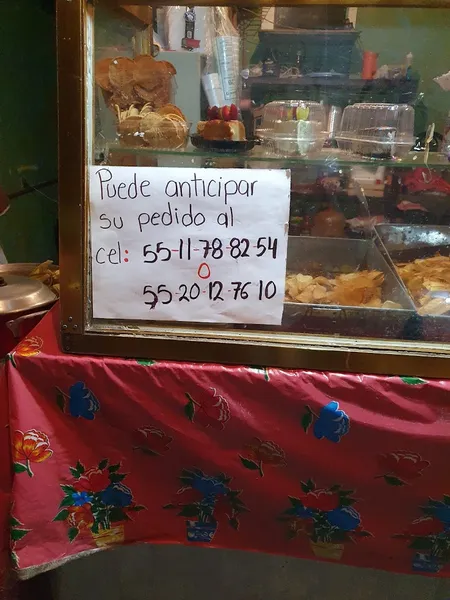 Puede anticipar
su pedido al
cel: 55-11-78-82-54
O
55-20-12-76 10